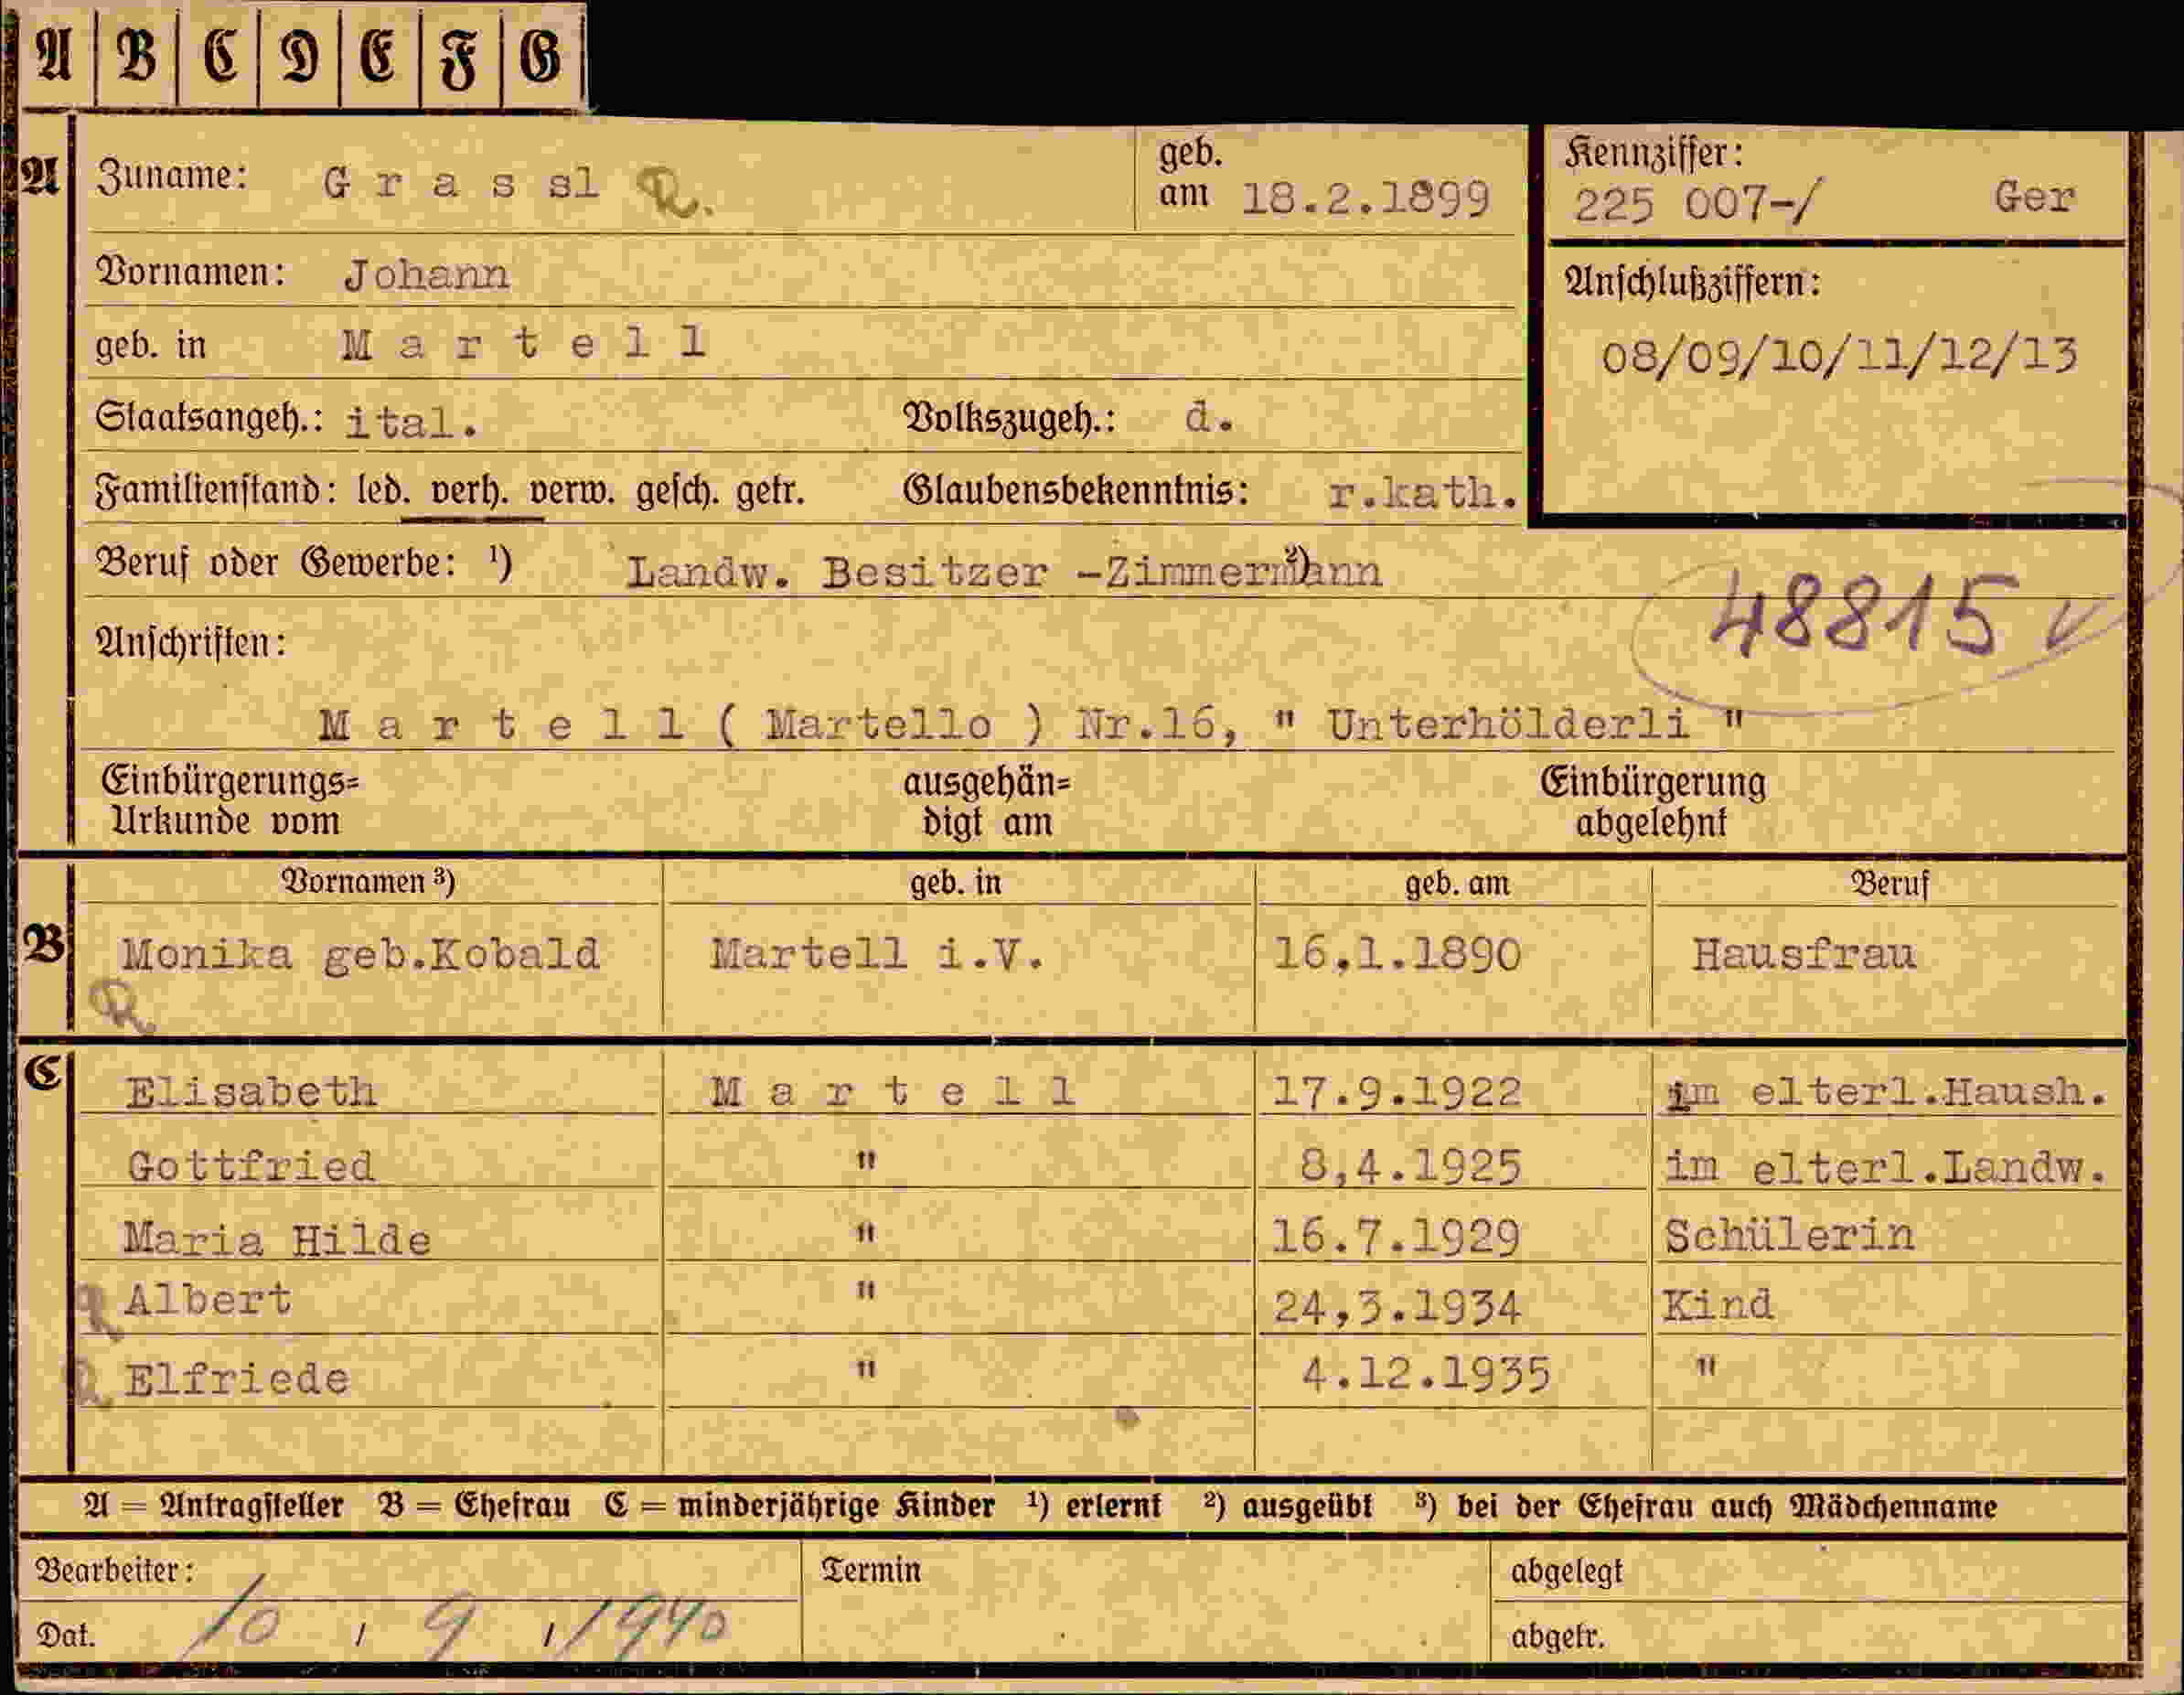 A B C D E F G
A Zuname: G r a s s l R. geb. am 18.2.1899
Kennziffer: 225 007-/ Ger
Vornamen: Johann
Anschlußziffern:
geb. in M a r t e l l
08/09/10/11/12/13
Staatsangeh.: ital. Volkszugeh.: d.
Familienstand: led. verh. verw. gesch. getr. Glaubensbekenntnis: r.kath.
Beruf oder Gewerbe: ¹) Landw. Besitzer -Zimmermann ²)
48815 v
Anschriften:
M a r t e l l ( Martello ) Nr.16, " Unterhölderli "
Einbürgerungs= ausgehän= Einbürgerung
Urkunde vom digt am abgelehnt
Vornamen ³) geb. in geb. am Beruf
B Monika geb.Kobald Martell i.V. 16,1.1890 Hausfrau
R
C Elisabeth M a r t e l l 17.9.1922 im elterl.Haush.
Gottfried " 8,4.1925 im elterl.Landw.
Maria Hilde " 16.7.1929 Schülerin
R Albert " 24,3.1934 Kind
R Elfriede " 4.12.1935 "
A = Antragsteller B = Ehefrau C = minderjährige Kinder ¹) erlernt ²) ausgeübt ³) bei der Ehefrau auch Mädchenname
Bearbeiter: Termin abgelegt
Dat. 10 / 9 / 1940 abgetr.